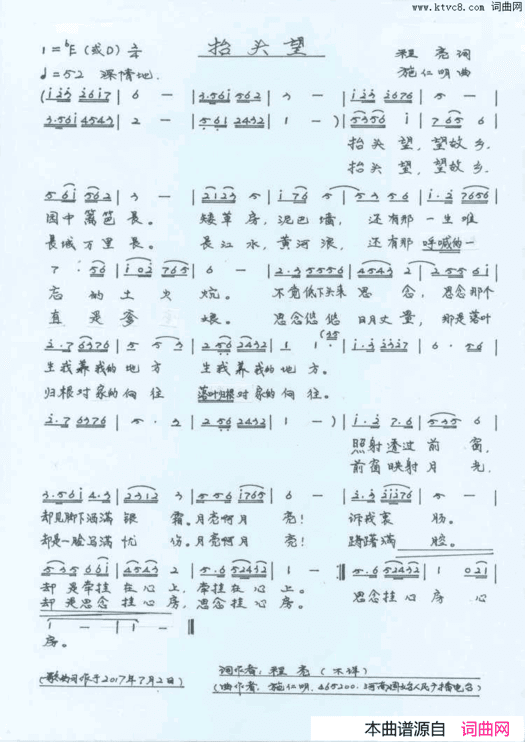 www.ktvc8.com 词曲网
抬头望
1=bE (或D) 2/4
♩=52 深情地.
程亮 词
施仁明 曲
抬头望,望故乡.
抬头望,望故乡.
园中篱笆长。矮草房,泥巴墙,还有那一生难
长城万里长。长江水,黄河浪,还有那呼喊的一
忘的土火炕。不觉低下头来思念,思念那个
直是爹娘。思念悠悠日月丈量,那是落叶
生我养我的地方 生我养我的地方。
归根对家的向往 落叶归根对家的向往。
照射透过前窗,
前窗映射月光,
却见脚下洒满银霜.月亮啊月亮!诉我衷肠。
却是一脸写满忧伤.月亮啊月亮!踌躇满腔。
却是牵挂在心上,牵挂在心上。
却是思念挂心房,思念挂心房。思念挂心房心
房。
(歌曲词作于2017年7月2日)
词作者:程亮(不详)
(曲作者:施仁明.465200.河南固始人民广播电台)
本曲谱源自 词曲网